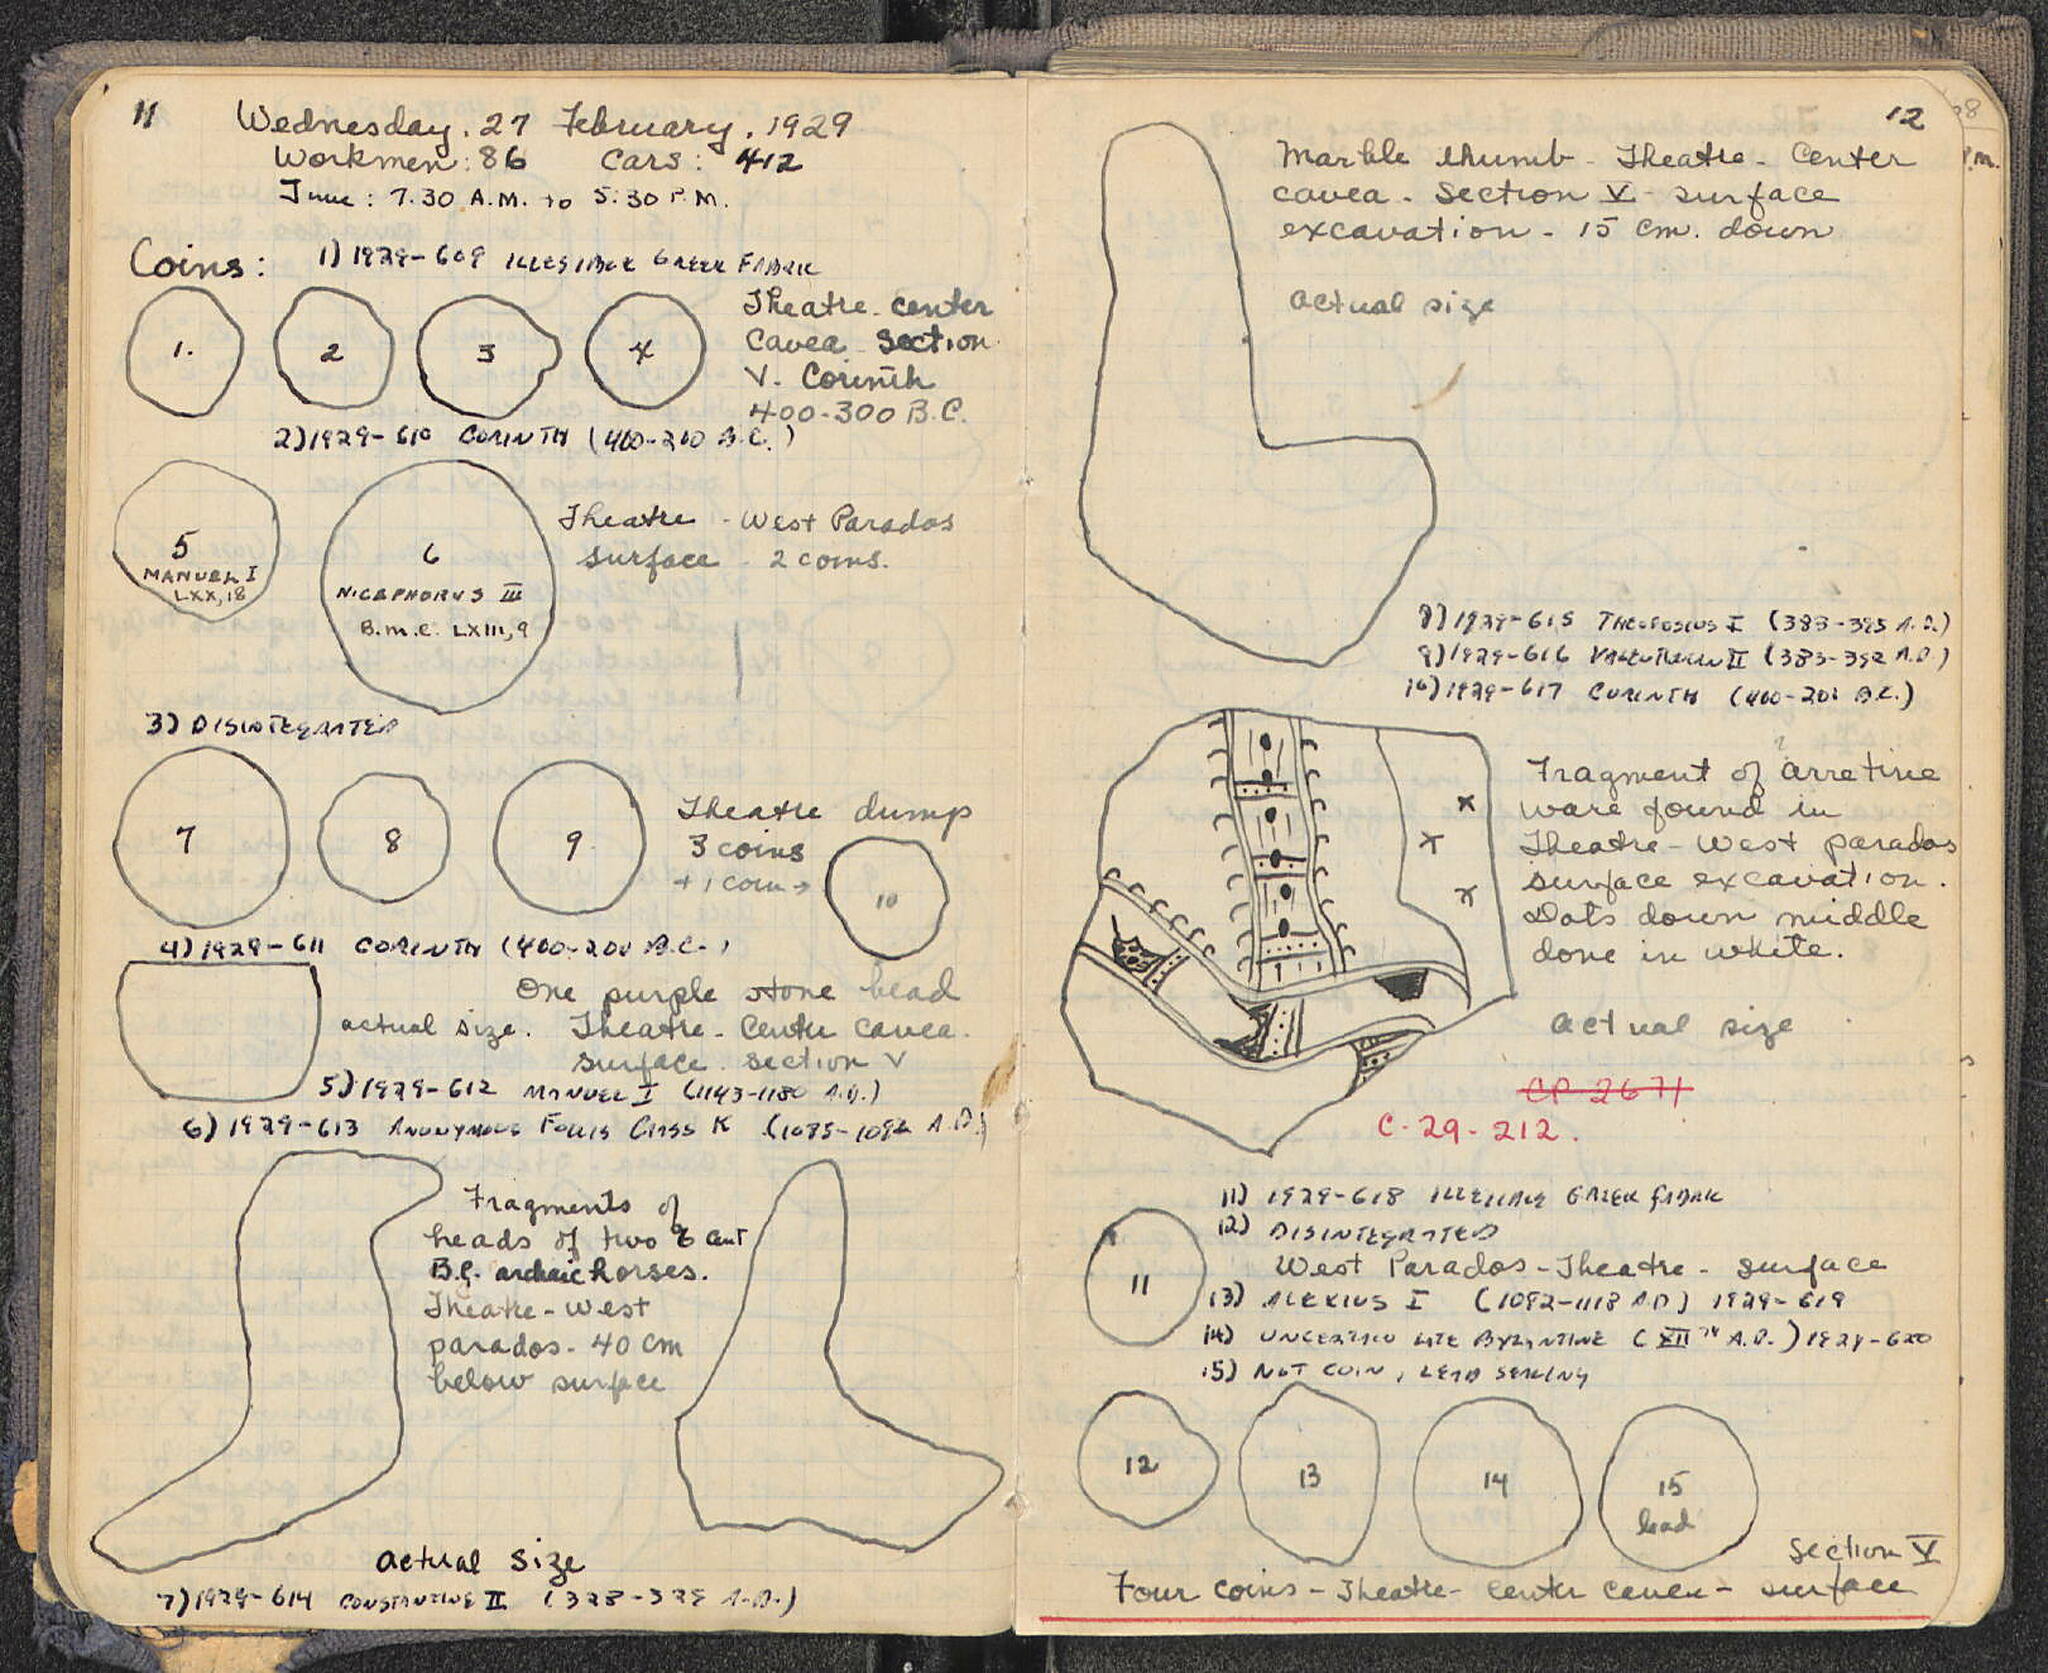 11
Wednesday. 27 February. 1929
Workmen: 86 Cars: 412
Time: 7.30 A.M. to 5:30 P.M.
Coins: 1) 1929-609 ILLEGIBLE GREEK FABRIC
1. 2 3 4
Theatre. center
Cavea Section
V. Corinth
400-300 B.C.
2) 1929-610 CORINTH (400-200 B.C.)
5
MANUEL I
LXX, 18
6
NICEPHORUS III
B.M.C. LXIII, 9
Theatre - West Parados
surface - 2 coins.
3) DISINTEGRATED
7 8 9
Theatre dump
3 coins
+ 1 coin →
10
4) 1929-611 CORINTH (400-200 B.C.)
One purple stone bead
actual size. Theatre - Center cavea.
surface. section V
5) 1929-612 MANUEL I (1143-1180 A.D.)
6) 1929-613 ANONYMOUS FOLLIS CLASS K (1085-1092 A.D.)
Fragments of
heads of two 6 cent
B.C. archaic horses.
Theatre - West
parados - 40 cm
below surface
actual size
7) 1929-614 CONSTANTINE II A.D.)
12
Marble thumb - Theatre - Center
cavea - Section V - surface
excavation - 15 cm. down
actual size
8) 1929-615 THEODOSIUS I (383-395 A.D.)
9) 1929-616 VALENTINIAN II (383-392 A.D.)
10) 1929-617 CORINTH (400-200 B.C.)
?
Fragment of arretine
ware found in
Theatre - West parados
surface excavation.
Dots down middle
done in white.
actual size
CP 2671
C-29-212.
11) 1929-618 ILLEGIBLE GREEK FABRIC
12) DISINTEGRATED
11
West Parados - Theatre - surface
13) ALEXIUS I (1092-1118 A.D.) 1929-619
14) UNCERTAIN LATE BYZANTINE (XII TH A.D.) 1929-620
15) NOT COIN, LEAD SEALING
12 13 14 15
lead
Section V
Four coins - Theatre - Center Cavea - surface